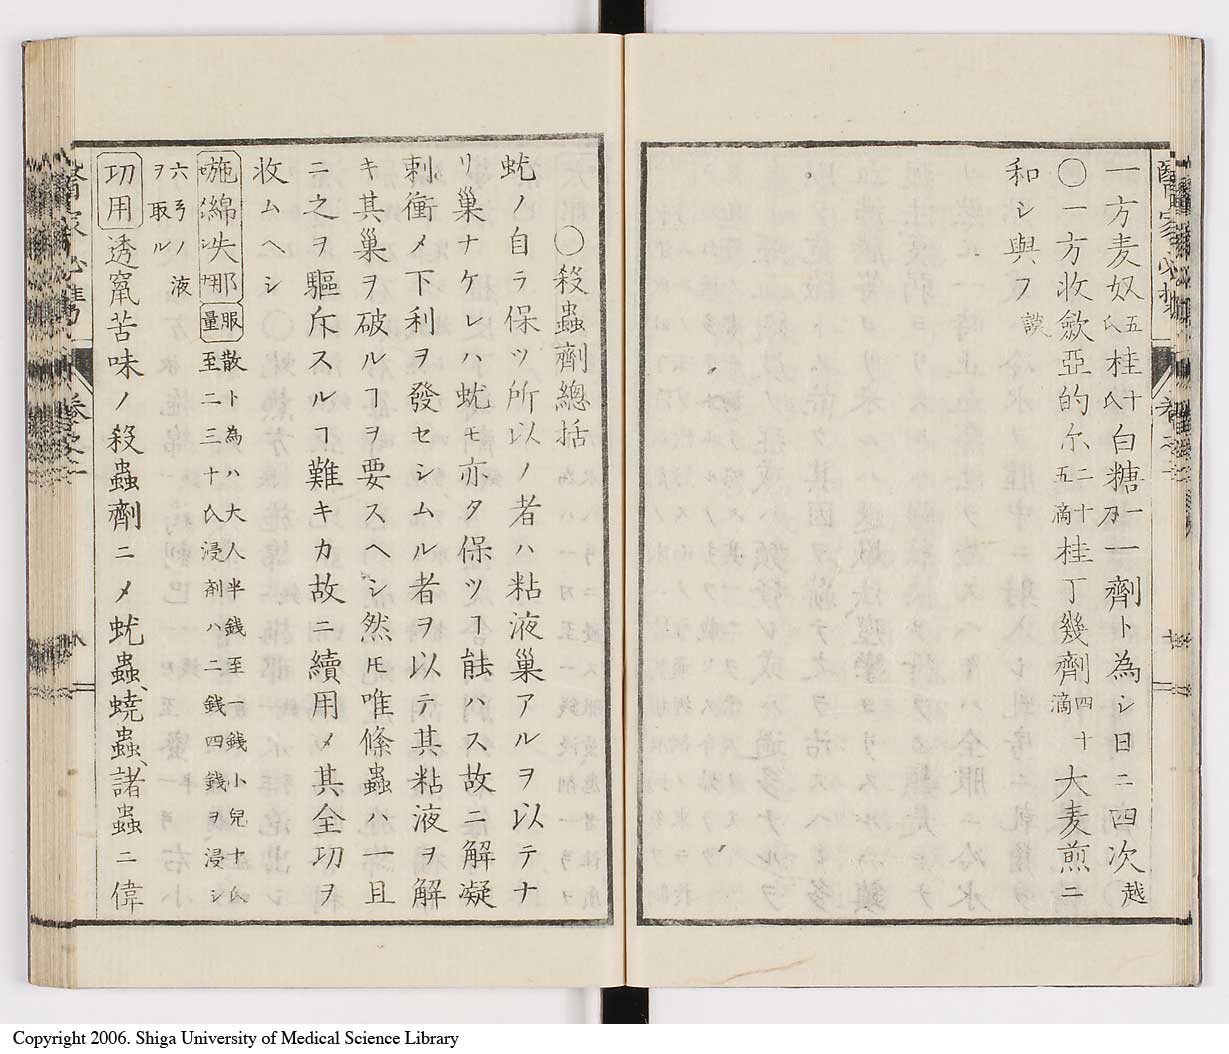 一方麦奴五𠆢桂十𠆢白糖一刄一劑ト為シ日ニ四次越
〇一方收歛亞的尓二十五滴桂丁幾劑四十滴大麦煎ニ
和シ與フ談
〇殺蟲劑總括
蚘ノ自ラ保ツ所以ノ者ハ粘液巢アルヲ以テナ
リ巢ナケレハ蚘モ亦タ保ツヿ能ハス故ニ解凝
刺衝メ下利ヲ發セシムル者ヲ以テ其粘液ヲ解
キ其巢ヲ破ルヿヲ要スヘシ然𪜈唯條蟲ハ一且
ニ之ヲ驅斥スルヿ難キカ故ニ續用メ其全功ヲ
收ムヘシ
㗇綿失那服量散ト為ハ大人半銭至一銭小兒十𠆢
至二三十𠆢浸剤ハ二銭四銭ヲ浸シ
六弓ノ液
ヲ取ル
功用透竄苦味ノ殺蟲劑ニメ蚘蟲、蟯蟲、諸蟲ニ偉
Copyright 2006. Shiga University of Medical Science Library